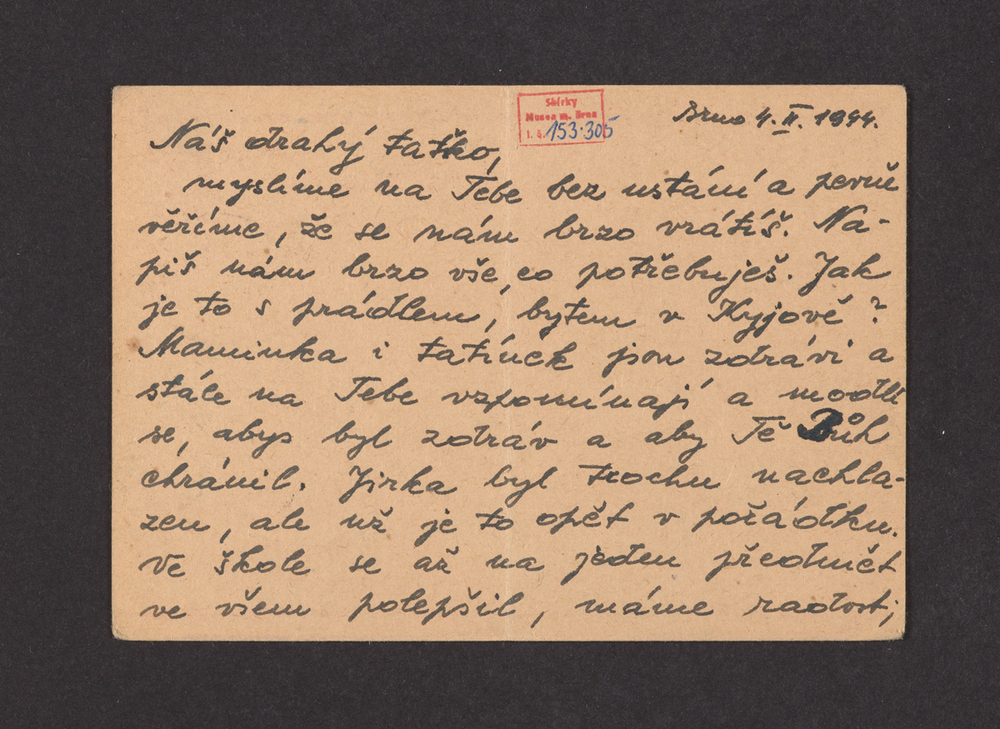 Sbírky
Musea m. Brna
i. č. 153.305
Brno 4. II. 1944.
Náš drahý taťko,
myslíme na Tebe bez ustání a pevně
věříme, že se nám brzo vrátíš. Na-
piš nám brzo vše, co potřebuješ. Jak
je to s prádlem, bytem v Kyjově?
Maminka i tatínek jsou zdrávi a
stále na Tebe vzpomínají a modlí
se, abys byl zdráv a aby Tě Bůh
chránil. Jirka byl trochu nachla-
zen, ale už je to opět v pořádku.
Ve škole se až na jeden předmět
ve všem polepšil, máme radost;